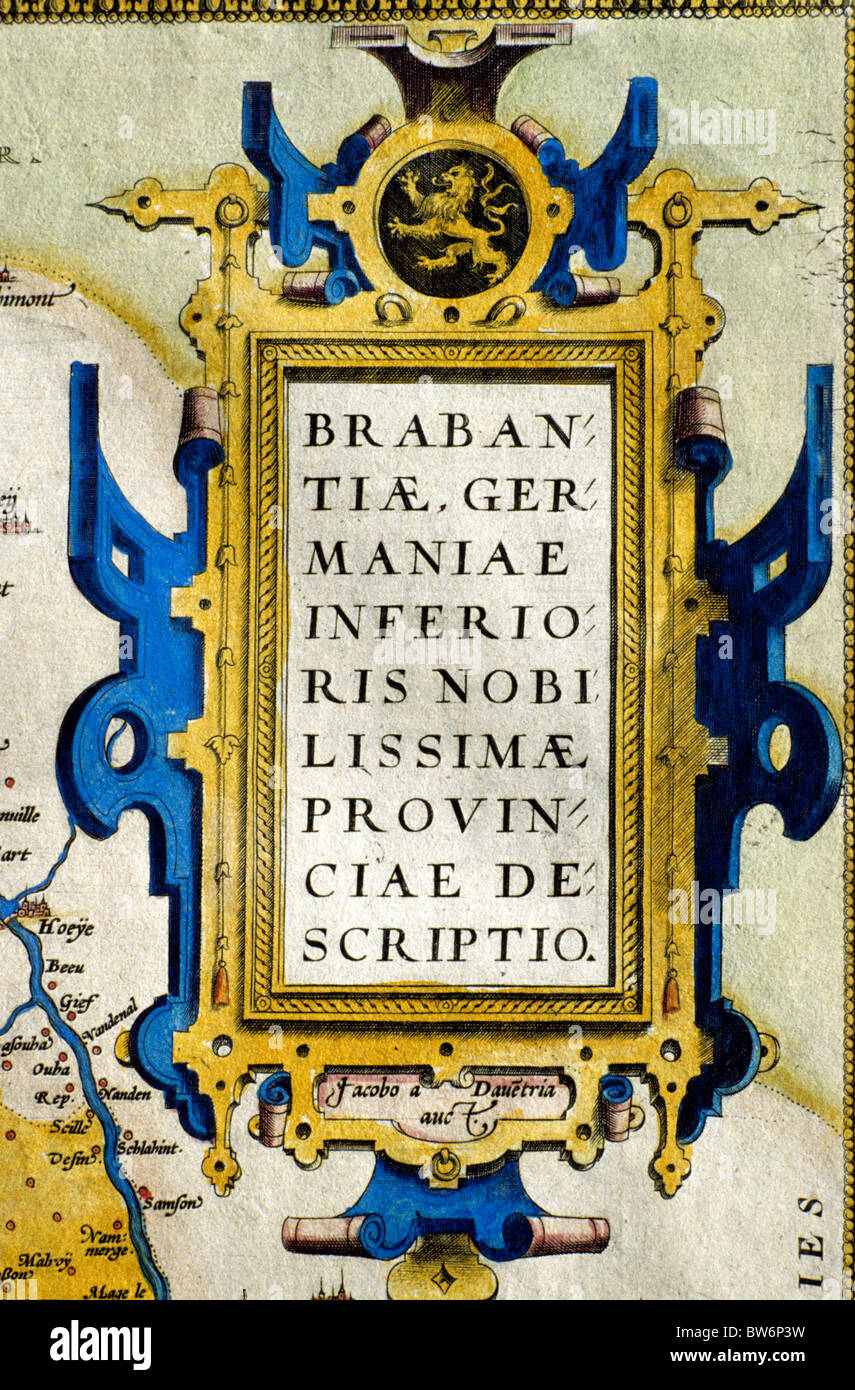 BRABAN⸗
TIÆ, GER⸗
MANIAE
INFERIO⸗
RIS NOBI⸗
LISSIMÆ
PROVIN⸗
CIAE DE⸗
SCRIPTIO.
Jacobo a Dauētria
auct.
R.
imont
art
Hoeÿe
Beeu
Gief
Vandenal
asouha
Ouha
Rep.
Nanden
Seille
Schlahint.
Vesin
Samson
Nam⸗
merge.
Malvÿ
Bon
Mage le
IES
alamy
a
alamy
Image ID: BW6P3W
www.alamy.com